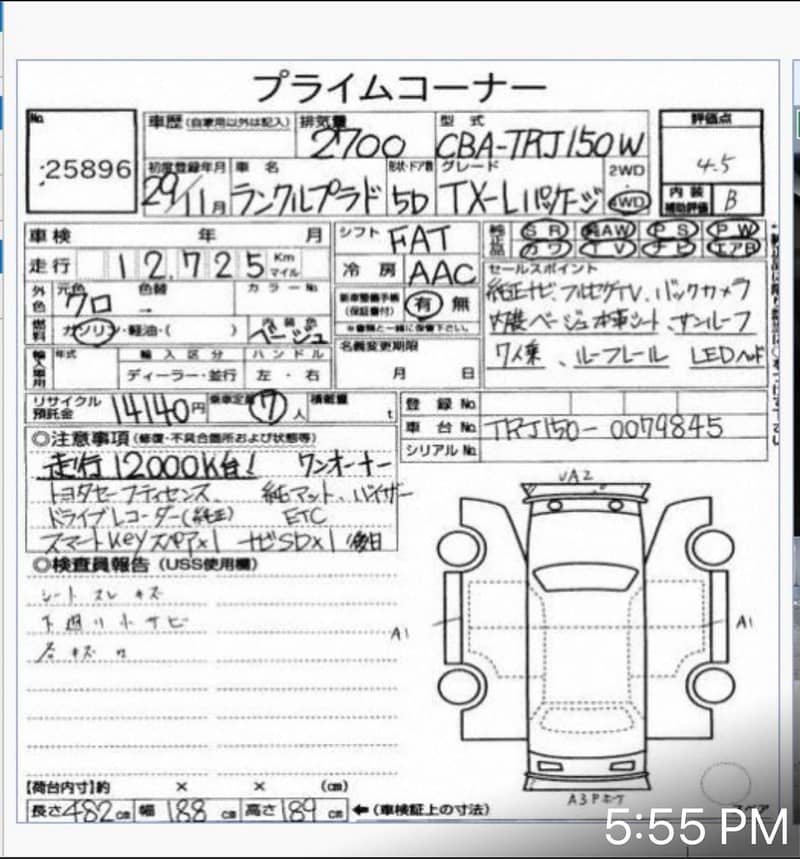 プライムコーナー
No. 25896
車歴(自家用以外は記入) 排気量 2700 型式 CBA-TRJ150W 評価点 4.5
初度登録年月 29/11月 車名 ランクルプラド 形状・ドア数 5D グレード TX-Lパッケージ 2WD 4WD 内装補助評価 B
車検 年 月 シフト FAT 純正品 SR AW PS PW
走行 12,725 Km マイル 冷房 AAC カワ TV ナビ エアB
外色 元色 クロ 色替 カラーNo. 新車整備手帳(保証書付) 有 無
※書類と一緒に保管下さい。
燃料 ガソリン・軽油・( ) 内装色 ベージュ
セールスポイント
純正ナビ、フルセグTV、バックカメラ
内装ベージュ本革シート、サンルーフ
7人乗、ルーフレール LEDヘッド
輸入車用 年式 輸入区分 ハンドル 名義変更期限
ディーラー・並行 左・右 月 日
リサイクル預託金 14140円 乗車定員 7人 積載量 t
登録No.
車台No. TRJ150-0079845
シリアルNo.
◎注意事項(修復・不具合箇所および状態等)
走行12000K台! ワンオーナー
トヨタセーフティセンス、純マット、バイザー
ドライブレコーダー(純正) ETC
スマートKeyスペア×1 ナビSD×1 後日
◎検査員報告(USS使用欄)
シートスレ キズ
下廻り小サビ
各キズ
UA2
A1
A1
A3Pキケ
スペア
【荷台内寸】約 × × (cm)
長さ482cm 幅188cm 高さ189cm ←(車検証上の寸法)
5:55 PM